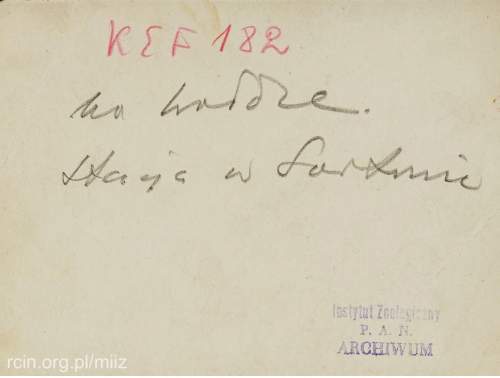 KEF 182
na wodze.
Stacja w
Instytut Zoologiczny
P. A. N.
ARCHIWUM
rcin.org.pl/miiz